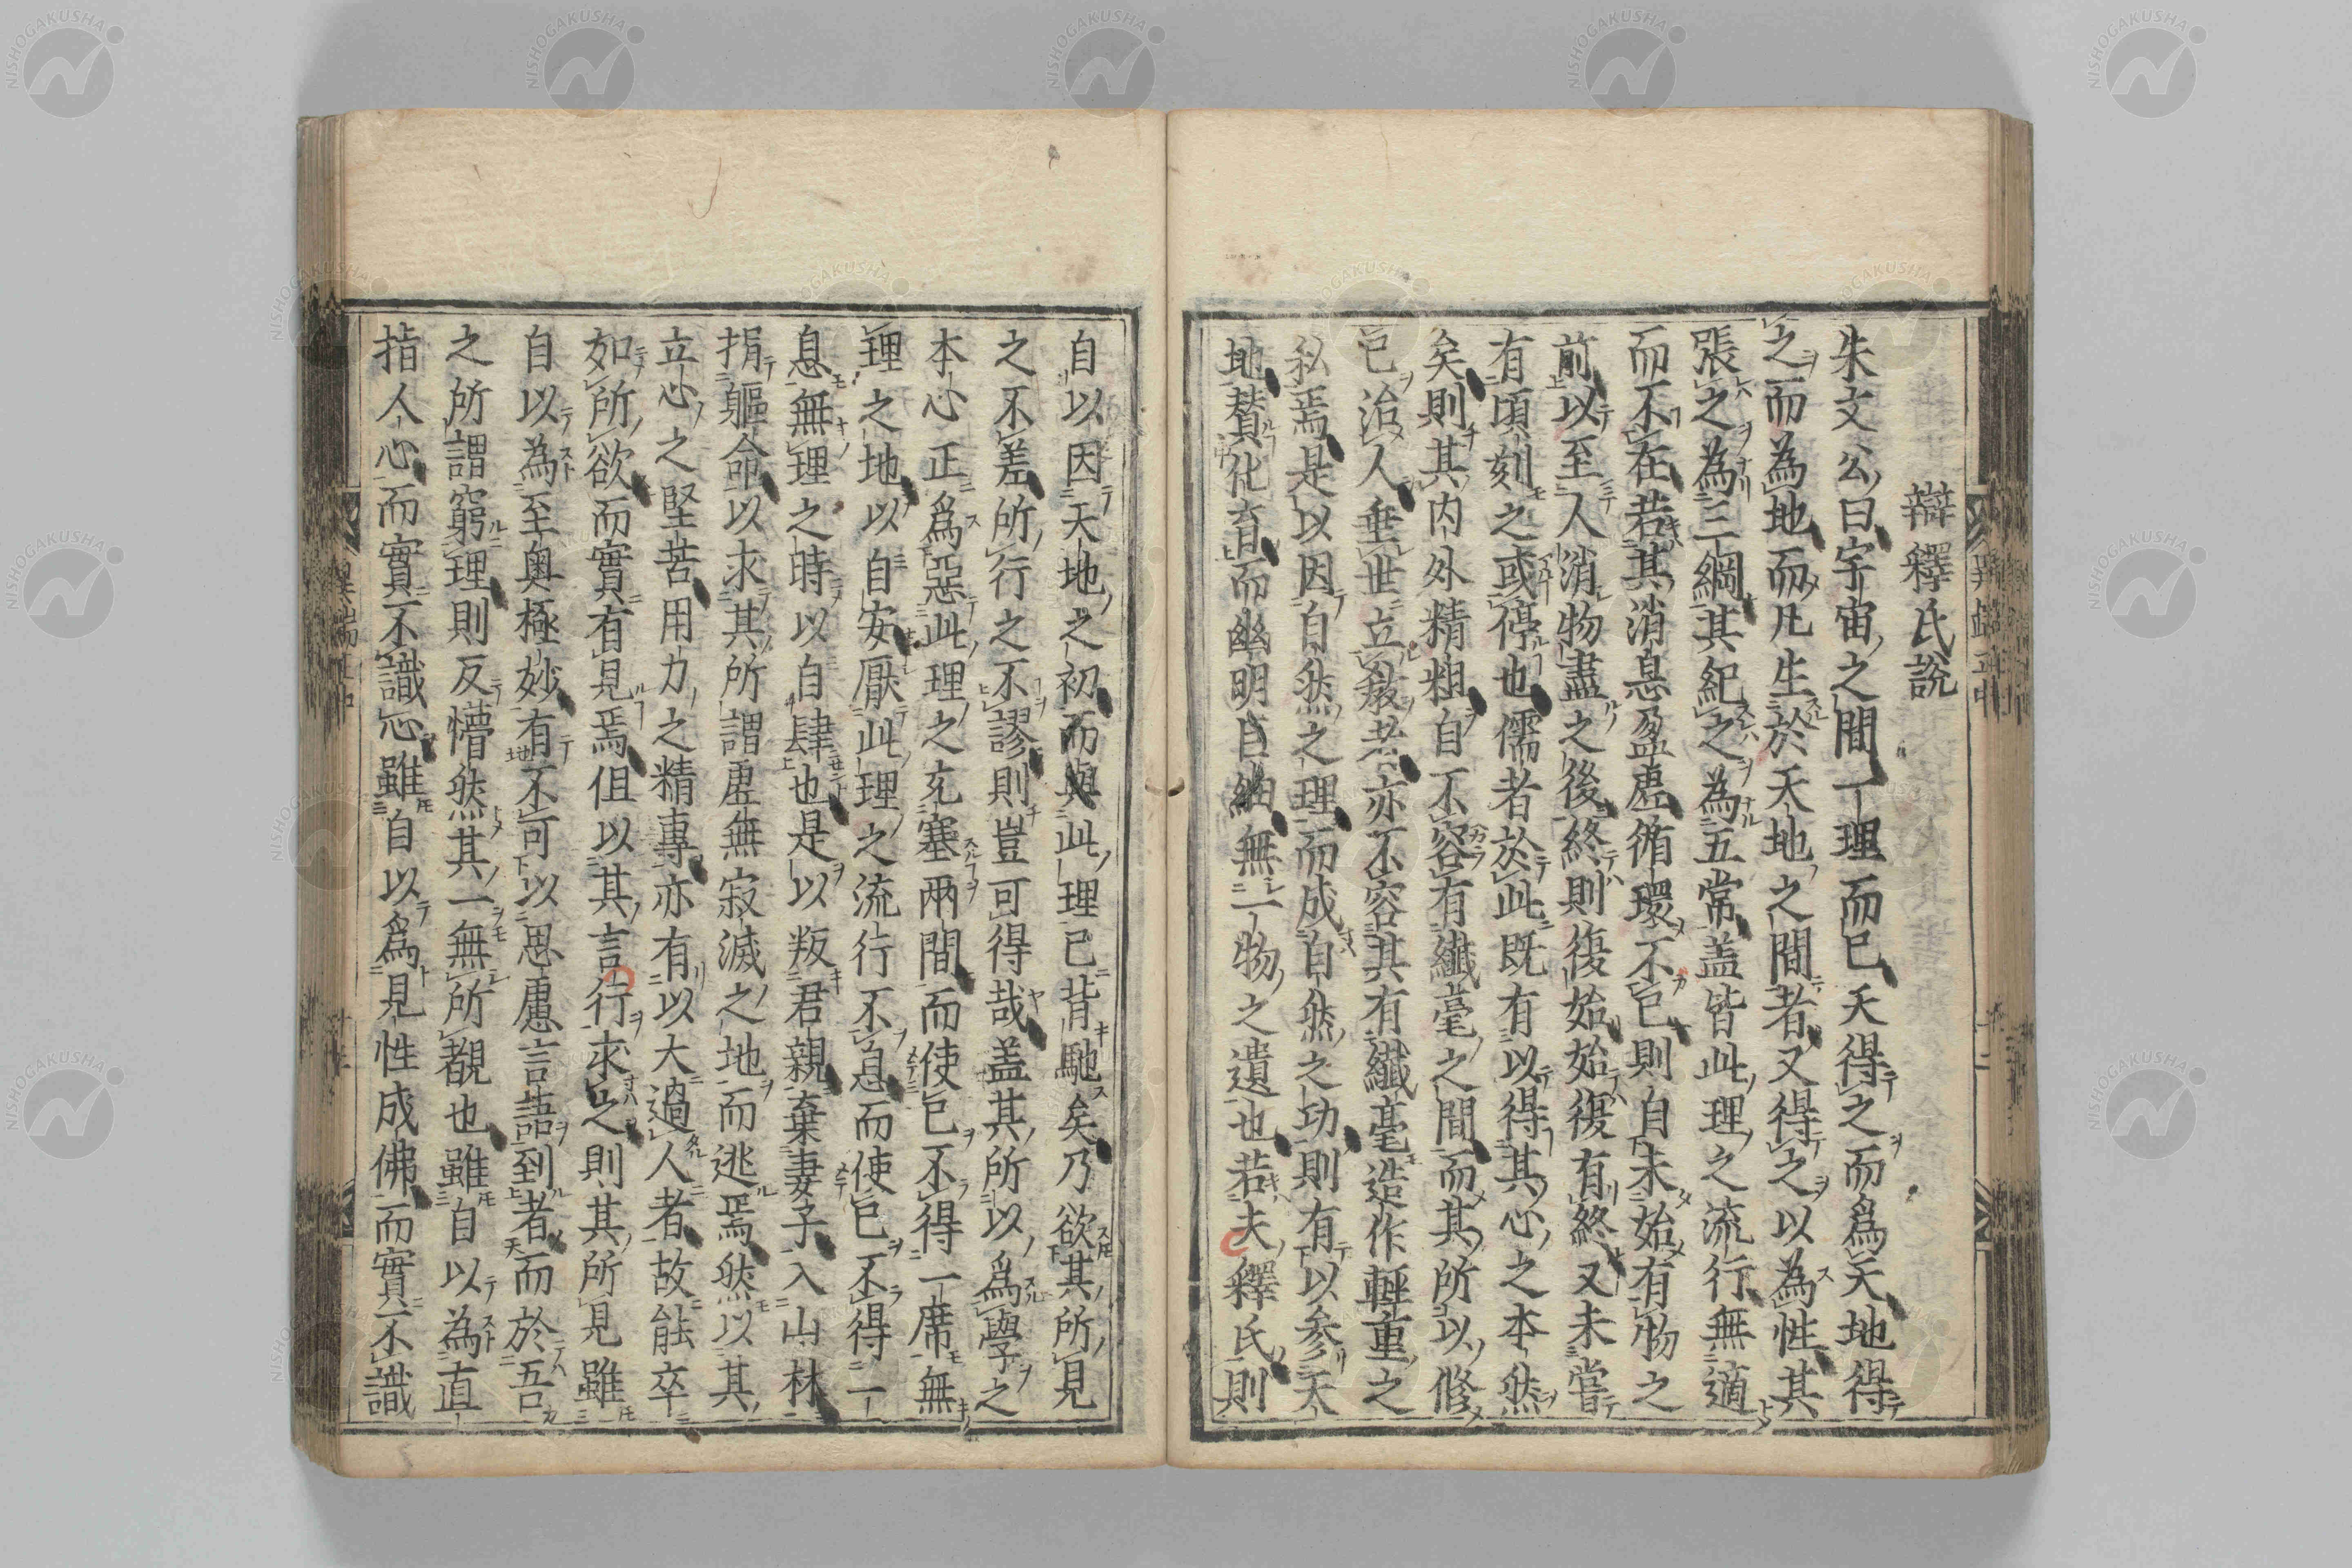 辯釋氏說
朱文公曰宇宙之間一理而已天得之而爲天地得
之而為地而凡生於天地之間者又得之以為性其
張之為三綱其紀之為五常盖皆此理之流行無適
而不在若其消息盈虛循環不已則自未始有物之
前以至人消物盡之後終則復始始復有終又未嘗
有頃刻之或停也儒者於此既有以得其心之本然
矣則其内外精粗自不容有纖毫之間而其所以修
己治人垂世立教者亦不容其有纖毫造作輕重之
私焉是以因自然之理而成自然之功則有以参天
地贊化育而幽明巨細無一物之遺也若夫釋氏則
自以因天地之初而與此理已背馳矣乃欲其所見
之不差所行之不謬則豈可得哉盖其所以爲學之
本心正爲惡此理之充塞兩間而使已不得一席無
理之地以自安厭此理之流行不息而使已不得一
息無理之時以自肆也是以叛君親棄妻子入山林
捐軀命以求其所謂虛無寂滅之地而逃焉然以其
立心之堅苦用力之精專亦有以大過人者故能卒
如所欲而實有見焉但以其言行求之則其所見雖
自以為至奥極妙有不可以思慮言語到者而於吾
之所謂窮理則反懵然其一無所覩也雖自以為直
指人心而實不識心雖自以爲見性成佛而實不識